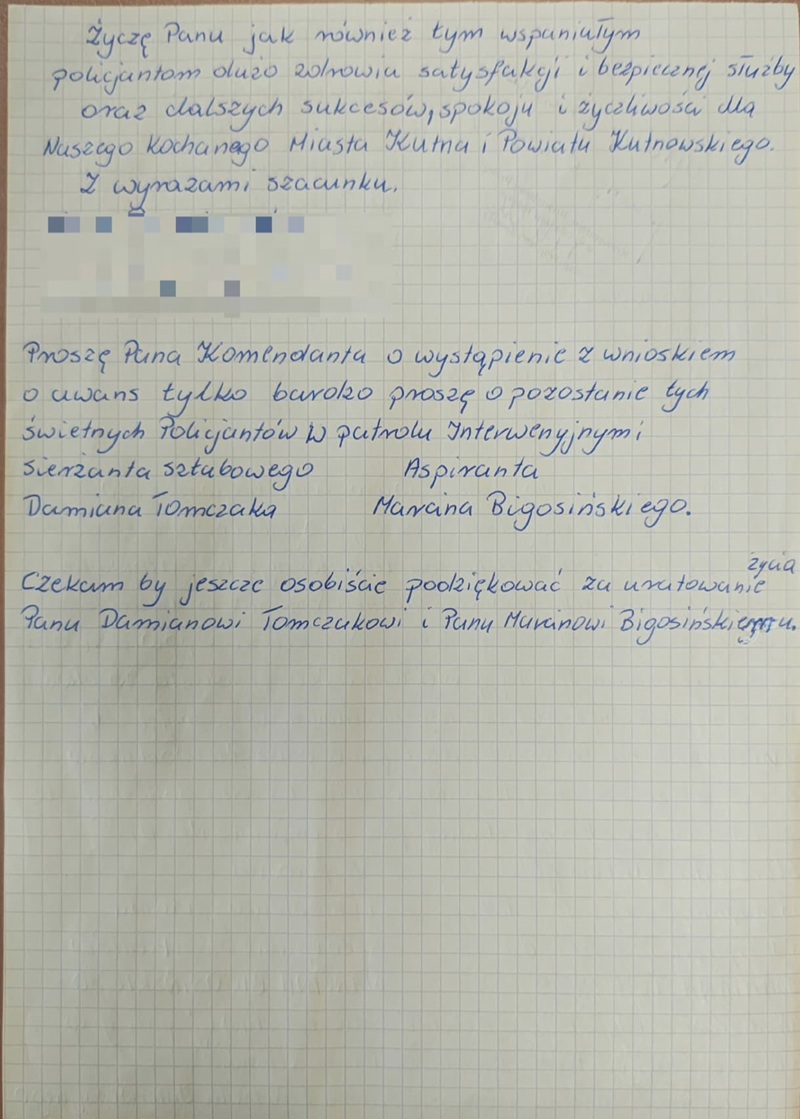 Życzę Panu jak również tym wspaniałym
policjantom dużo zdrowia satysfakcji i bezpiecznej służby
oraz dalszych sukcesów, spokoju i życzliwości dla
Naszego Kochanego Miasta Kutna i Powiatu Kutnowskiego.
Z wyrazami szacunku.
Proszę Pana Komendanta o wystąpienie z wnioskiem
o awans tylko bardzo proszę o pozostanie tych
świetnych Policjantów w patrolu Interwenyjnymi
sierżanta sztabowego Aspiranta
Damiana Tomczaka Marcina Bigosińskiego.
Czekam by jeszcze osobiście podziękować za uratowanie życia
Panu Damianowi Tomczakowi i Panu Marcinowi Bigosińskiemu.